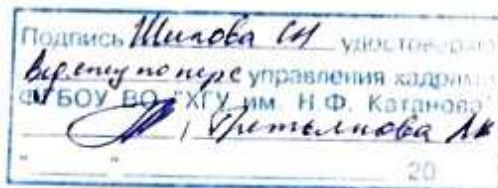 Подпись Шипова СН удостоверяю
Вед. спец по перс управления кадрами
ФГБОУ ВО "ХГУ им. Н.Ф. Катанова"
"    " 20